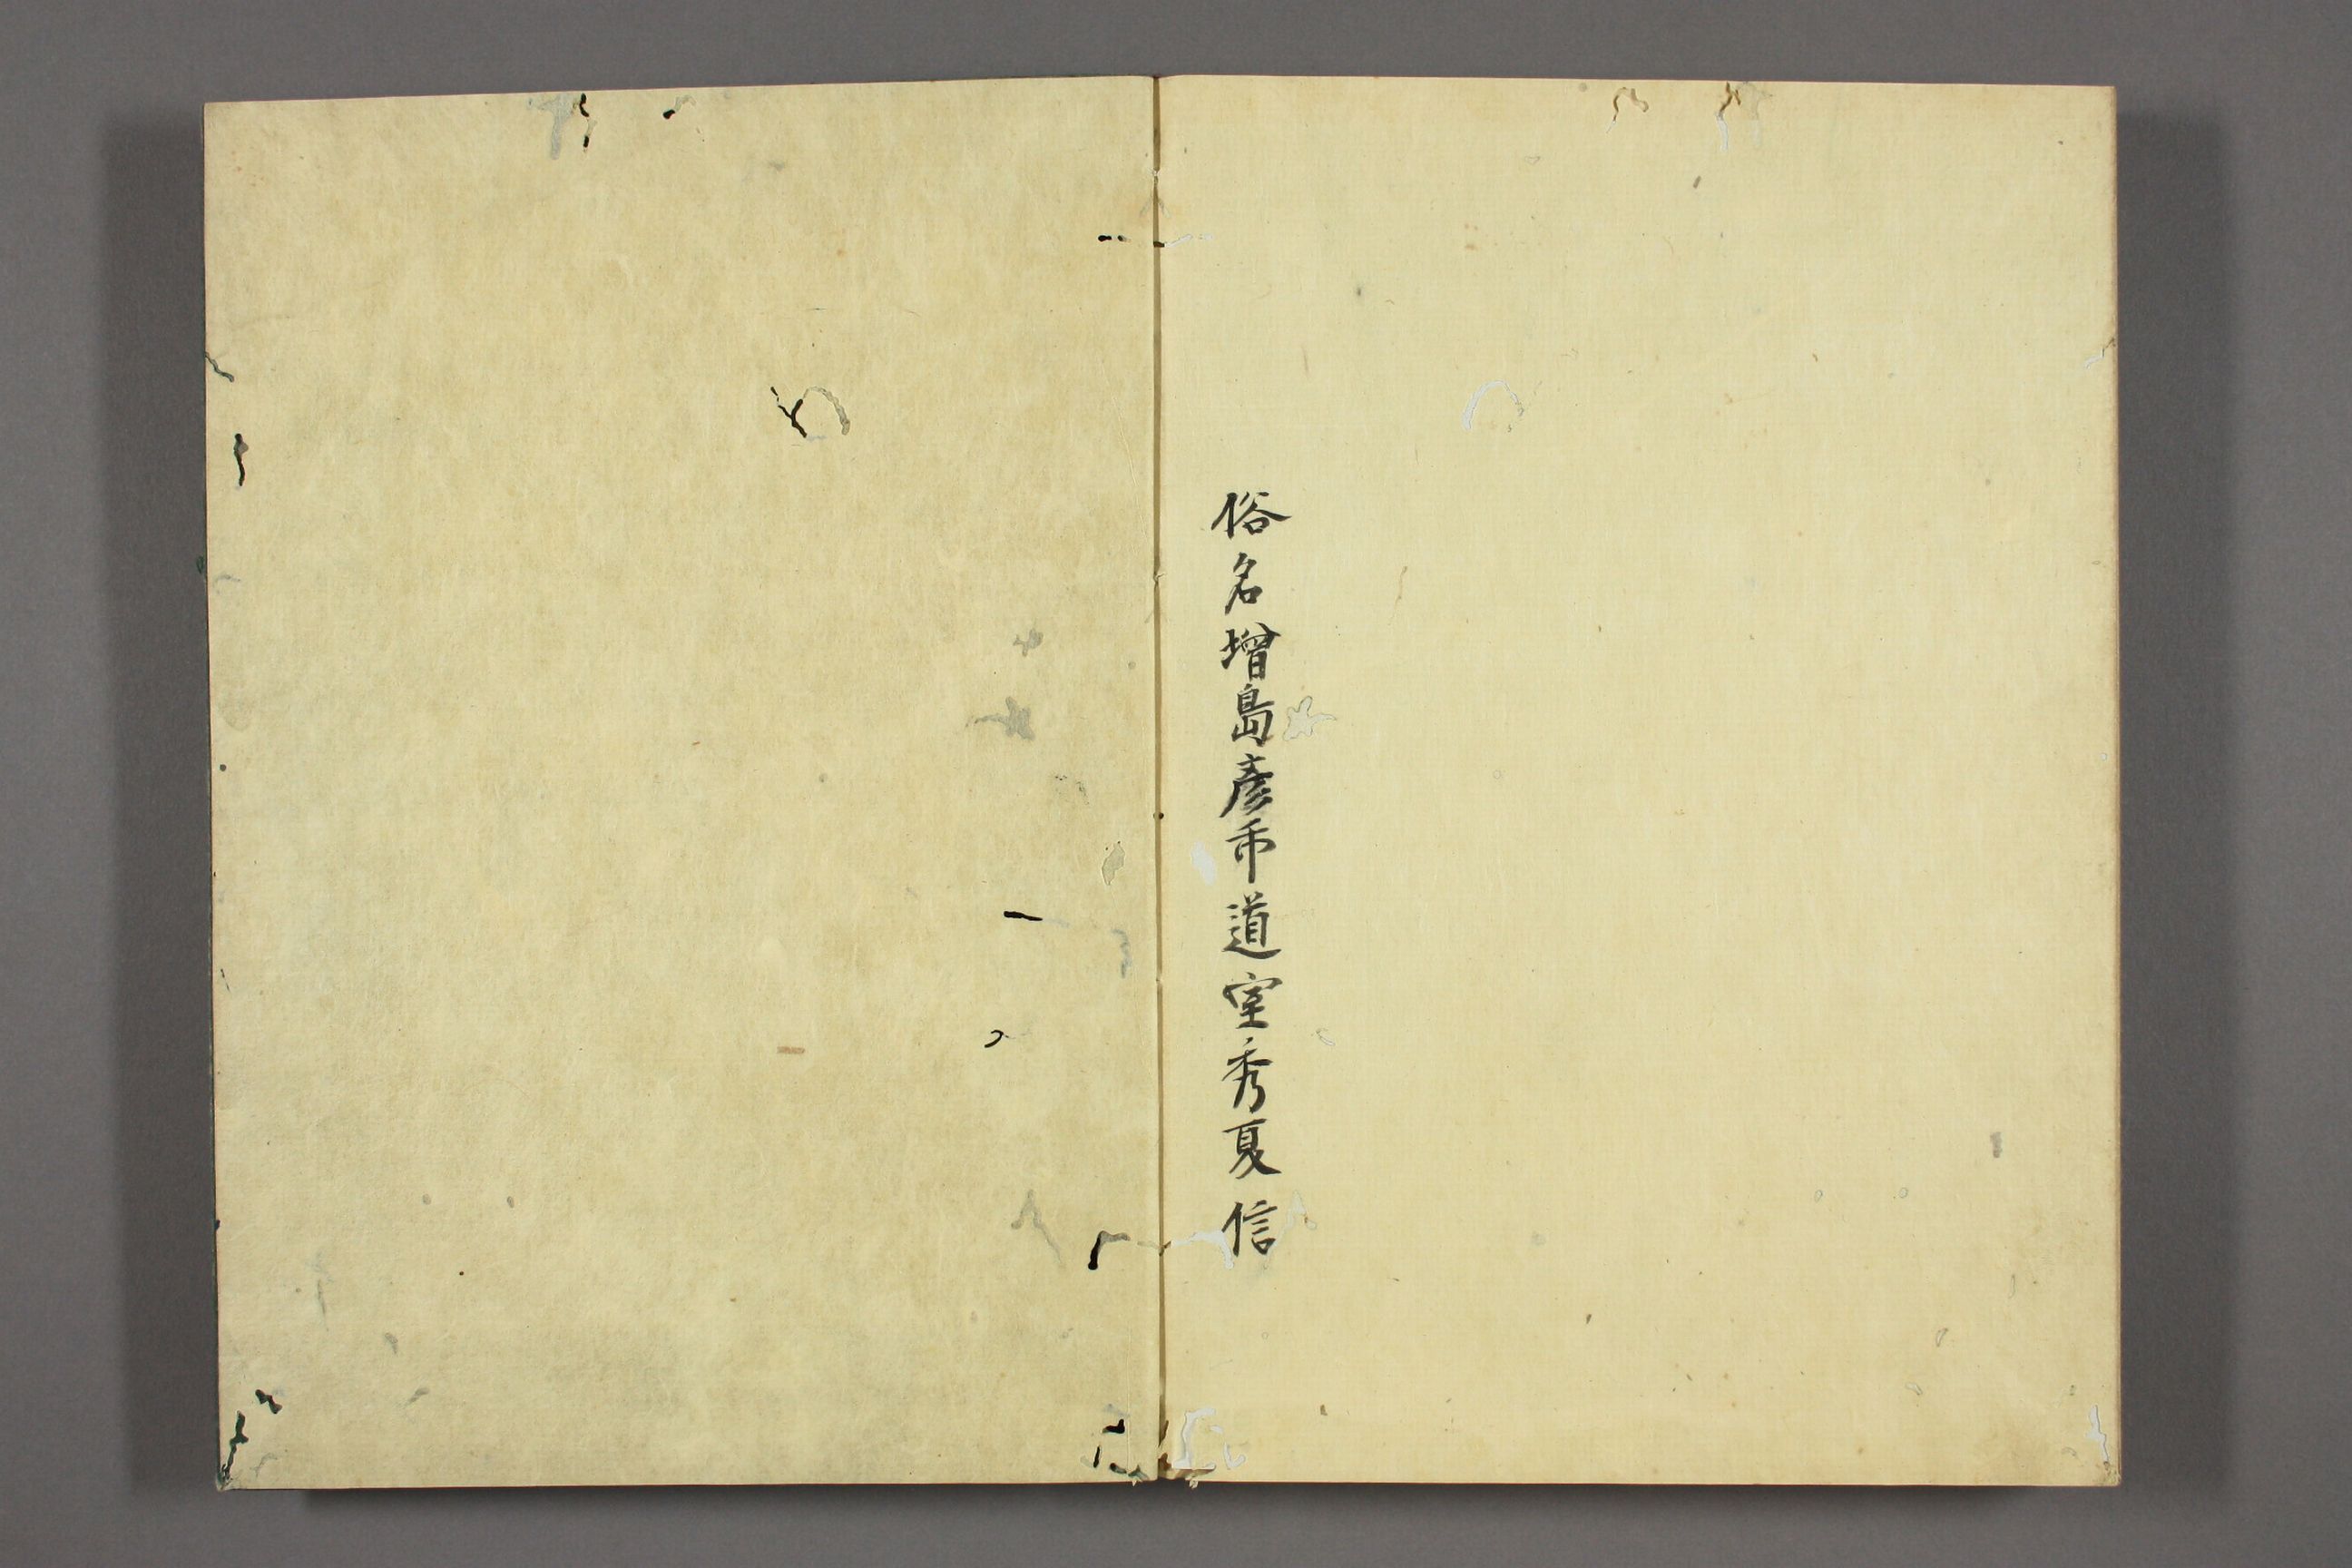 俗名増島彦市道室秀夏信